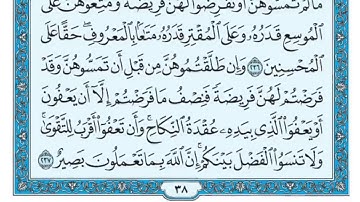 مَا لَمْ تَمَسُّوهُنَّ أَوْ تَفْرِضُوا۟ لَهُنَّ فَرِيضَةً وَمَتِّعُوهُنَّ عَلَى
ٱلْمُوسِعِ قَدَرُهُۥ وَعَلَى ٱلْمُقْتِرِ قَدَرُهُۥ مَتَٰعًۢا بِٱلْمَعْرُوفِ حَقًّا عَلَى
ٱلْمُحْسِنِينَ ٢٣٦ وَإِن طَلَّقْتُمُوهُنَّ مِن قَبْلِ أَن تَمَسُّوهُنَّ وَقَدْ
فَرَضْتُمْ لَهُنَّ فَرِيضَةً فَنِصْفُ مَا فَرَضْتُمْ إِلَّآ أَن يَعْفُونَ
أَوْ يَعْفُوَا۟ ٱلَّذِى بِيَدِهِۦ عُقْدَةُ ٱلنِّكَاحِ وَأَن تَعْفُوٓا۟ أَقْرَبُ لِلتَّقْوَىٰ
وَلَا تَنسَوُا۟ ٱلْفَضْلَ بَيْنَكُمْ إِنَّ ٱللَّهَ بِمَا تَعْمَلُونَ بَصِيرٌ ٢٣٧
٣٨